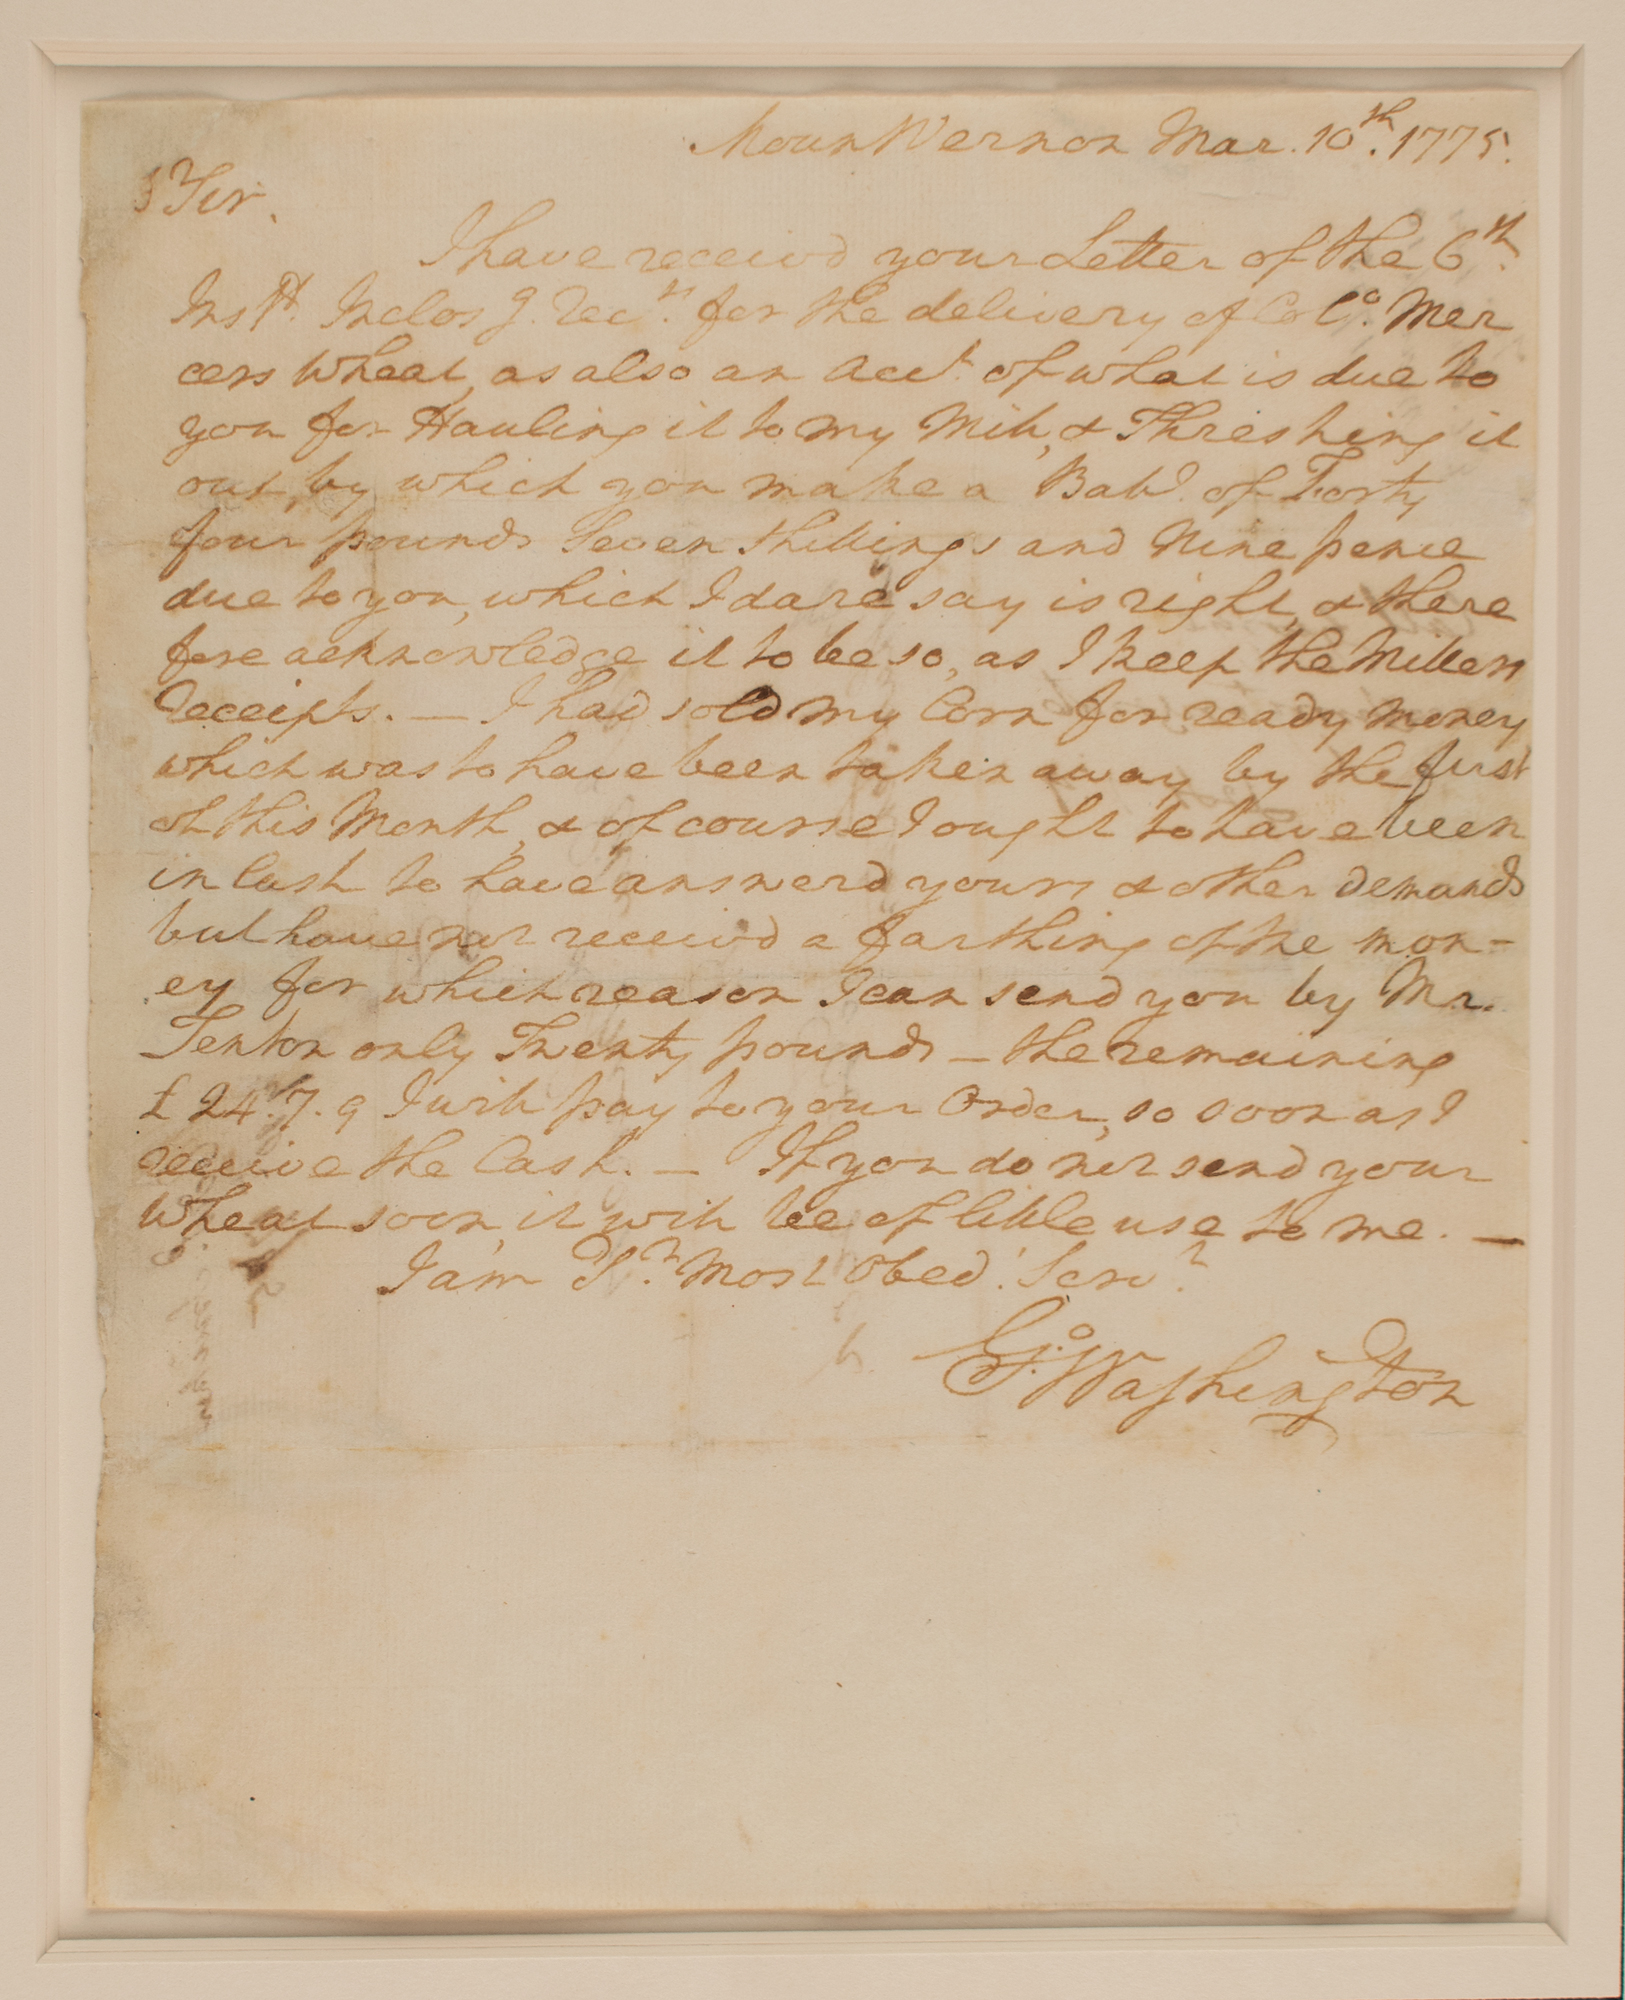 Mount Vernon Mar. 10th. 1775.
Sir,
I have receivd your Letter of the 6th.
Inst. Inclosg. Rects. for the delivery of Colo. Mer
cers Wheat, as also an Acct. of what is due to
you for Hauling it to my Mill, & Threshing it
out, by which you make a Balle. of Forty
four pounds Seven Shillings and Nine pence
due to you, which I dare say is right, & there
fore acknowledge it to be so, as I keep the Millers
receipts. — I had sold my Corn for ready money
which was to have been taken away by the first
of this Month, & of course I ought to have been
in Cash to have answerd yours & other demands
but have not receivd a farthing of the mon-
ey for which reason I can send you by Mr.
Fenton only Twenty pounds — the remaining
£24.7.9 I will pay to your Order, so soon as I
receive the Cash. — If you do not send your
Wheat soon, it will be of little use to me. —
I am Sr. Most Obedt. Servt.
Go: Washington